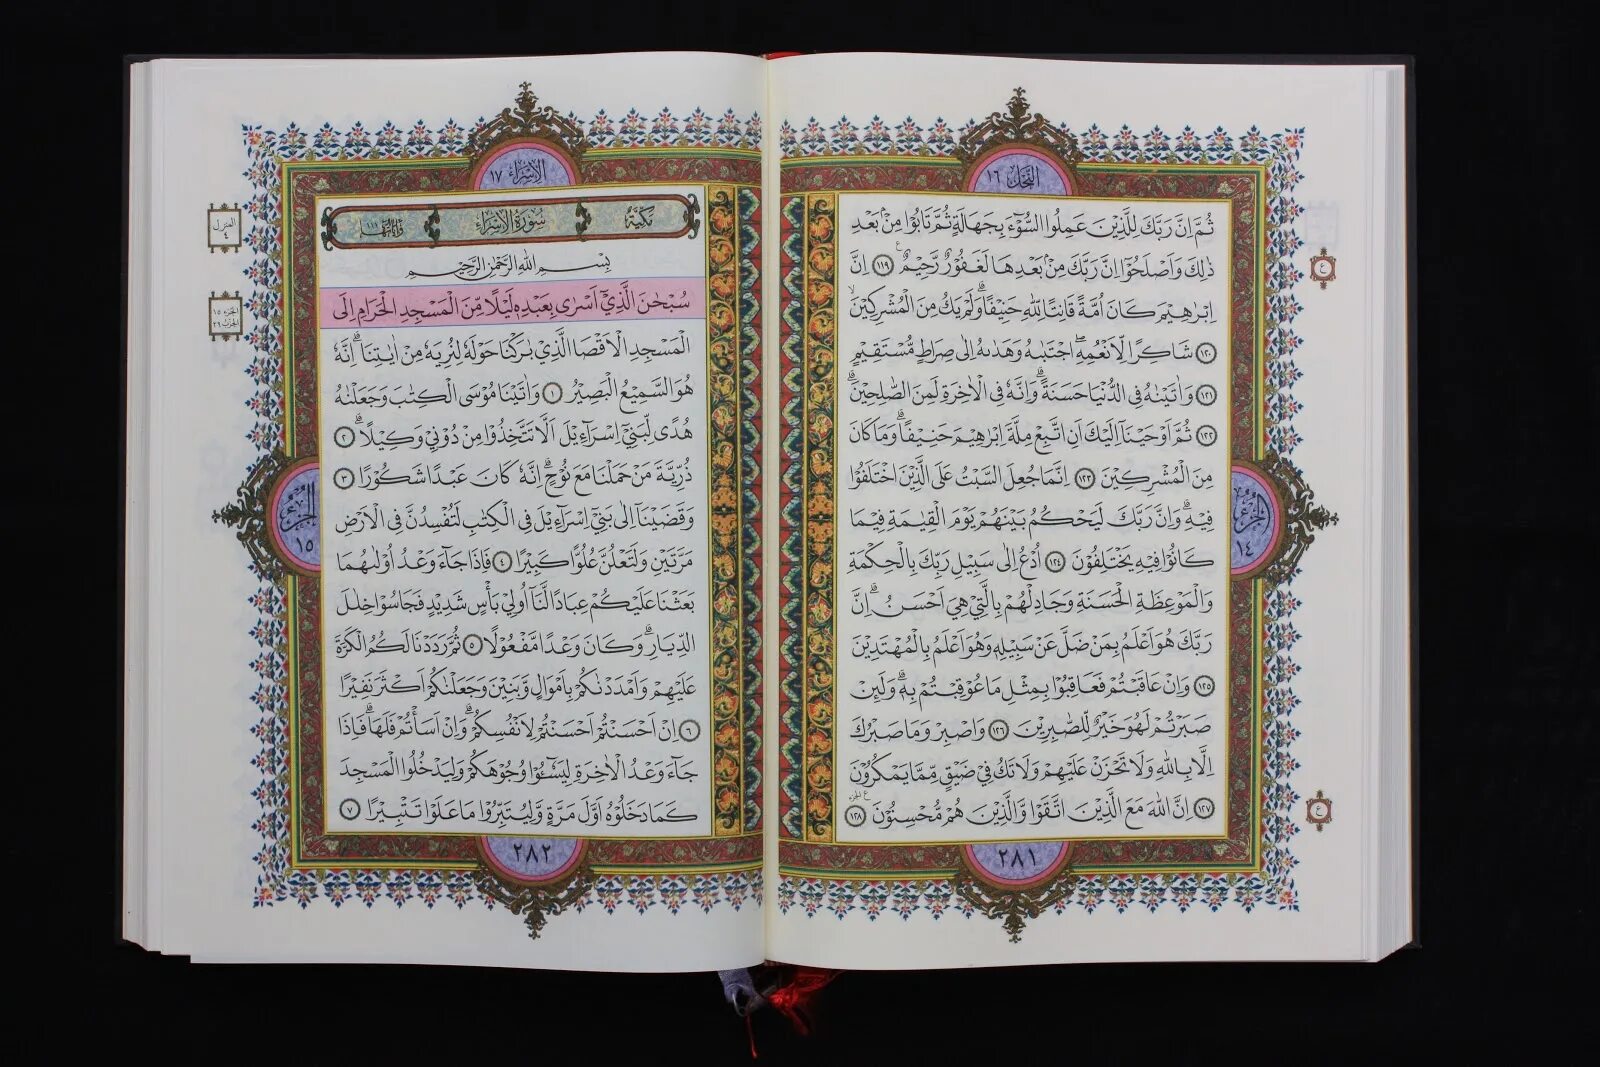 النحل ١٦
ثُمَّ اِنَّ رَبَّكَ لِلَّذِينَ عَمِلُوا السُّوٓءَ بِجَهَالَةٍ ثُمَّ تَابُوا مِنْ بَعْدِ
ذٰلِكَ وَاَصْلَحُوٓا اِنَّ رَبَّكَ مِنْ بَعْدِهَا لَغَفُورٌ رَّحِيمٌ ١١٩ اِنَّ
اِبْرٰهِيمَ كَانَ اُمَّةً قَانِتًا لِّلّٰهِ حَنِيفًاۗ وَلَمْ يَكُ مِنَ الْمُشْرِكِينَۙ
١٢٠ شَاكِرًا لِّاَنْعُمِهِۗ اجْتَبٰىهُ وَهَدٰىهُ اِلٰى صِرَاطٍ مُّسْتَقِيمٍ
١٢١ وَاٰتَيْنٰهُ فِى الدُّنْيَا حَسَنَةًۗ وَاِنَّهُ فِى الْاٰخِرَةِ لَمِنَ الصّٰلِحِينَۗ
١٢٢ ثُمَّ اَوْحَيْنَآ اِلَيْكَ اَنِ اتَّبِعْ مِلَّةَ اِبْرٰهِيمَ حَنِيفًاۗ وَمَا كَانَ
مِنَ الْمُشْرِكِينَ ١٢٣ اِنَّمَا جُعِلَ السَّبْتُ عَلَى الَّذِينَ اخْتَلَفُوا
فِيهِۗ وَاِنَّ رَبَّكَ لَيَحْكُمُ بَيْنَهُمْ يَوْمَ الْقِيٰمَةِ فِيمَا
كَانُوا فِيهِ يَخْتَلِفُونَ ١٢٤ اُدْعُ اِلٰى سَبِيلِ رَبِّكَ بِالْحِكْمَةِ
وَالْمَوْعِظَةِ الْحَسَنَةِ وَجَادِلْهُمْ بِالَّتِي هِيَ اَحْسَنُۗ اِنَّ
رَبَّكَ هُوَ اَعْلَمُ بِمَنْ ضَلَّ عَنْ سَبِيلِهِ وَهُوَ اَعْلَمُ بِالْمُهْتَدِينَ
١٢٥ وَاِنْ عَاقَبْتُمْ فَعَاقِبُوا بِمِثْلِ مَا عُوقِبْتُمْ بِهِۗ وَلَئِنْ
صَبَرْتُمْ لَهُوَ خَيْرٌ لِّلصّٰبِرِينَ ١٢٦ وَاصْبِرْ وَمَا صَبْرُكَ
اِلَّا بِاللّٰهِ وَلَا تَحْزَنْ عَلَيْهِمْ وَلَا تَكُ فِي ضَيْقٍ مِّمَّا يَمْكُرُونَ
١٢٧ اِنَّ اللّٰهَ مَعَ الَّذِينَ اتَّقَوْا وَّالَّذِينَ هُمْ مُّحْسِنُونَ ١٢٨
ع
ع
ع
ع الجزء
الجزء
١٤
٢٨١
الاسراء ١٧
مَكِّيَّةٌ سُورَةُ الْاِسْرَاءِ وَاٰيَاتُهَا ١١١
بِسْمِ اللّٰهِ الرَّحْمٰنِ الرَّحِيمِ
سُبْحٰنَ الَّذِيٓ اَسْرٰى بِعَبْدِهِ لَيْلًا مِّنَ الْمَسْجِدِ الْحَرَامِ اِلَى
الْمَسْجِدِ الْاَقْصَا الَّذِي بٰرَكْنَا حَوْلَهُ لِنُرِيَهُ مِنْ اٰيٰتِنَاۗ اِنَّهُ
هُوَ السَّمِيعُ الْبَصِيرُ ١ وَاٰتَيْنَا مُوْسَى الْكِتٰبَ وَجَعَلْنٰهُ
هُدًى لِّبَنِيٓ اِسْرَآءِيلَ اَلَّا تَتَّخِذُوا مِنْ دُوْنِيْ وَكِيْلًاۗ ٢
ذُرِّيَّةَ مَنْ حَمَلْنَا مَعَ نُوْحٍۗ اِنَّهُ كَانَ عَبْدًا شَكُوْرًا ٣
وَقَضَيْنَآ اِلٰى بَنِيٓ اِسْرَآءِيلَ فِى الْكِتٰبِ لَتُفْسِدُنَّ فِى الْاَرْضِ
مَرَّتَيْنِ وَلَتَعْلُنَّ عُلُوًّا كَبِيرًا ٤ فَاِذَا جَآءَ وَعْدُ اُوْلٰىهُمَا
بَعَثْنَا عَلَيْكُمْ عِبَادًا لَّنَآ اُولِيْ بَأْسٍ شَدِيدٍ فَجَاسُوا خِلٰلَ
الدِّيَارِۗ وَكَانَ وَعْدًا مَّفْعُولًا ٥ ثُمَّ رَدَدْنَا لَكُمُ الْكَرَّةَ
عَلَيْهِمْ وَاَمْدَدْنٰكُمْ بِاَمْوَالٍ وَّبَنِينَ وَجَعَلْنٰكُمْ اَكْثَرَ نَفِيرًا
٦ اِنْ اَحْسَنْتُمْ اَحْسَنْتُمْ لِاَنْفُسِكُمْۗ وَاِنْ اَسَأْتُمْ فَلَهَاۗ فَاِذَا
جَآءَ وَعْدُ الْاٰخِرَةِ لِيَسُٓوءُوا وُجُوهَكُمْ وَلِيَدْخُلُوا الْمَسْجِدَ
كَمَا دَخَلُوهُ اَوَّلَ مَرَّةٍ وَّلِيُتَبِّرُوا مَا عَلَوْا تَتْبِيرًا ٧
المنزل
٤
الجزء ١٥
الحزب ٢٩
الجزء
١٥
٢٨٢